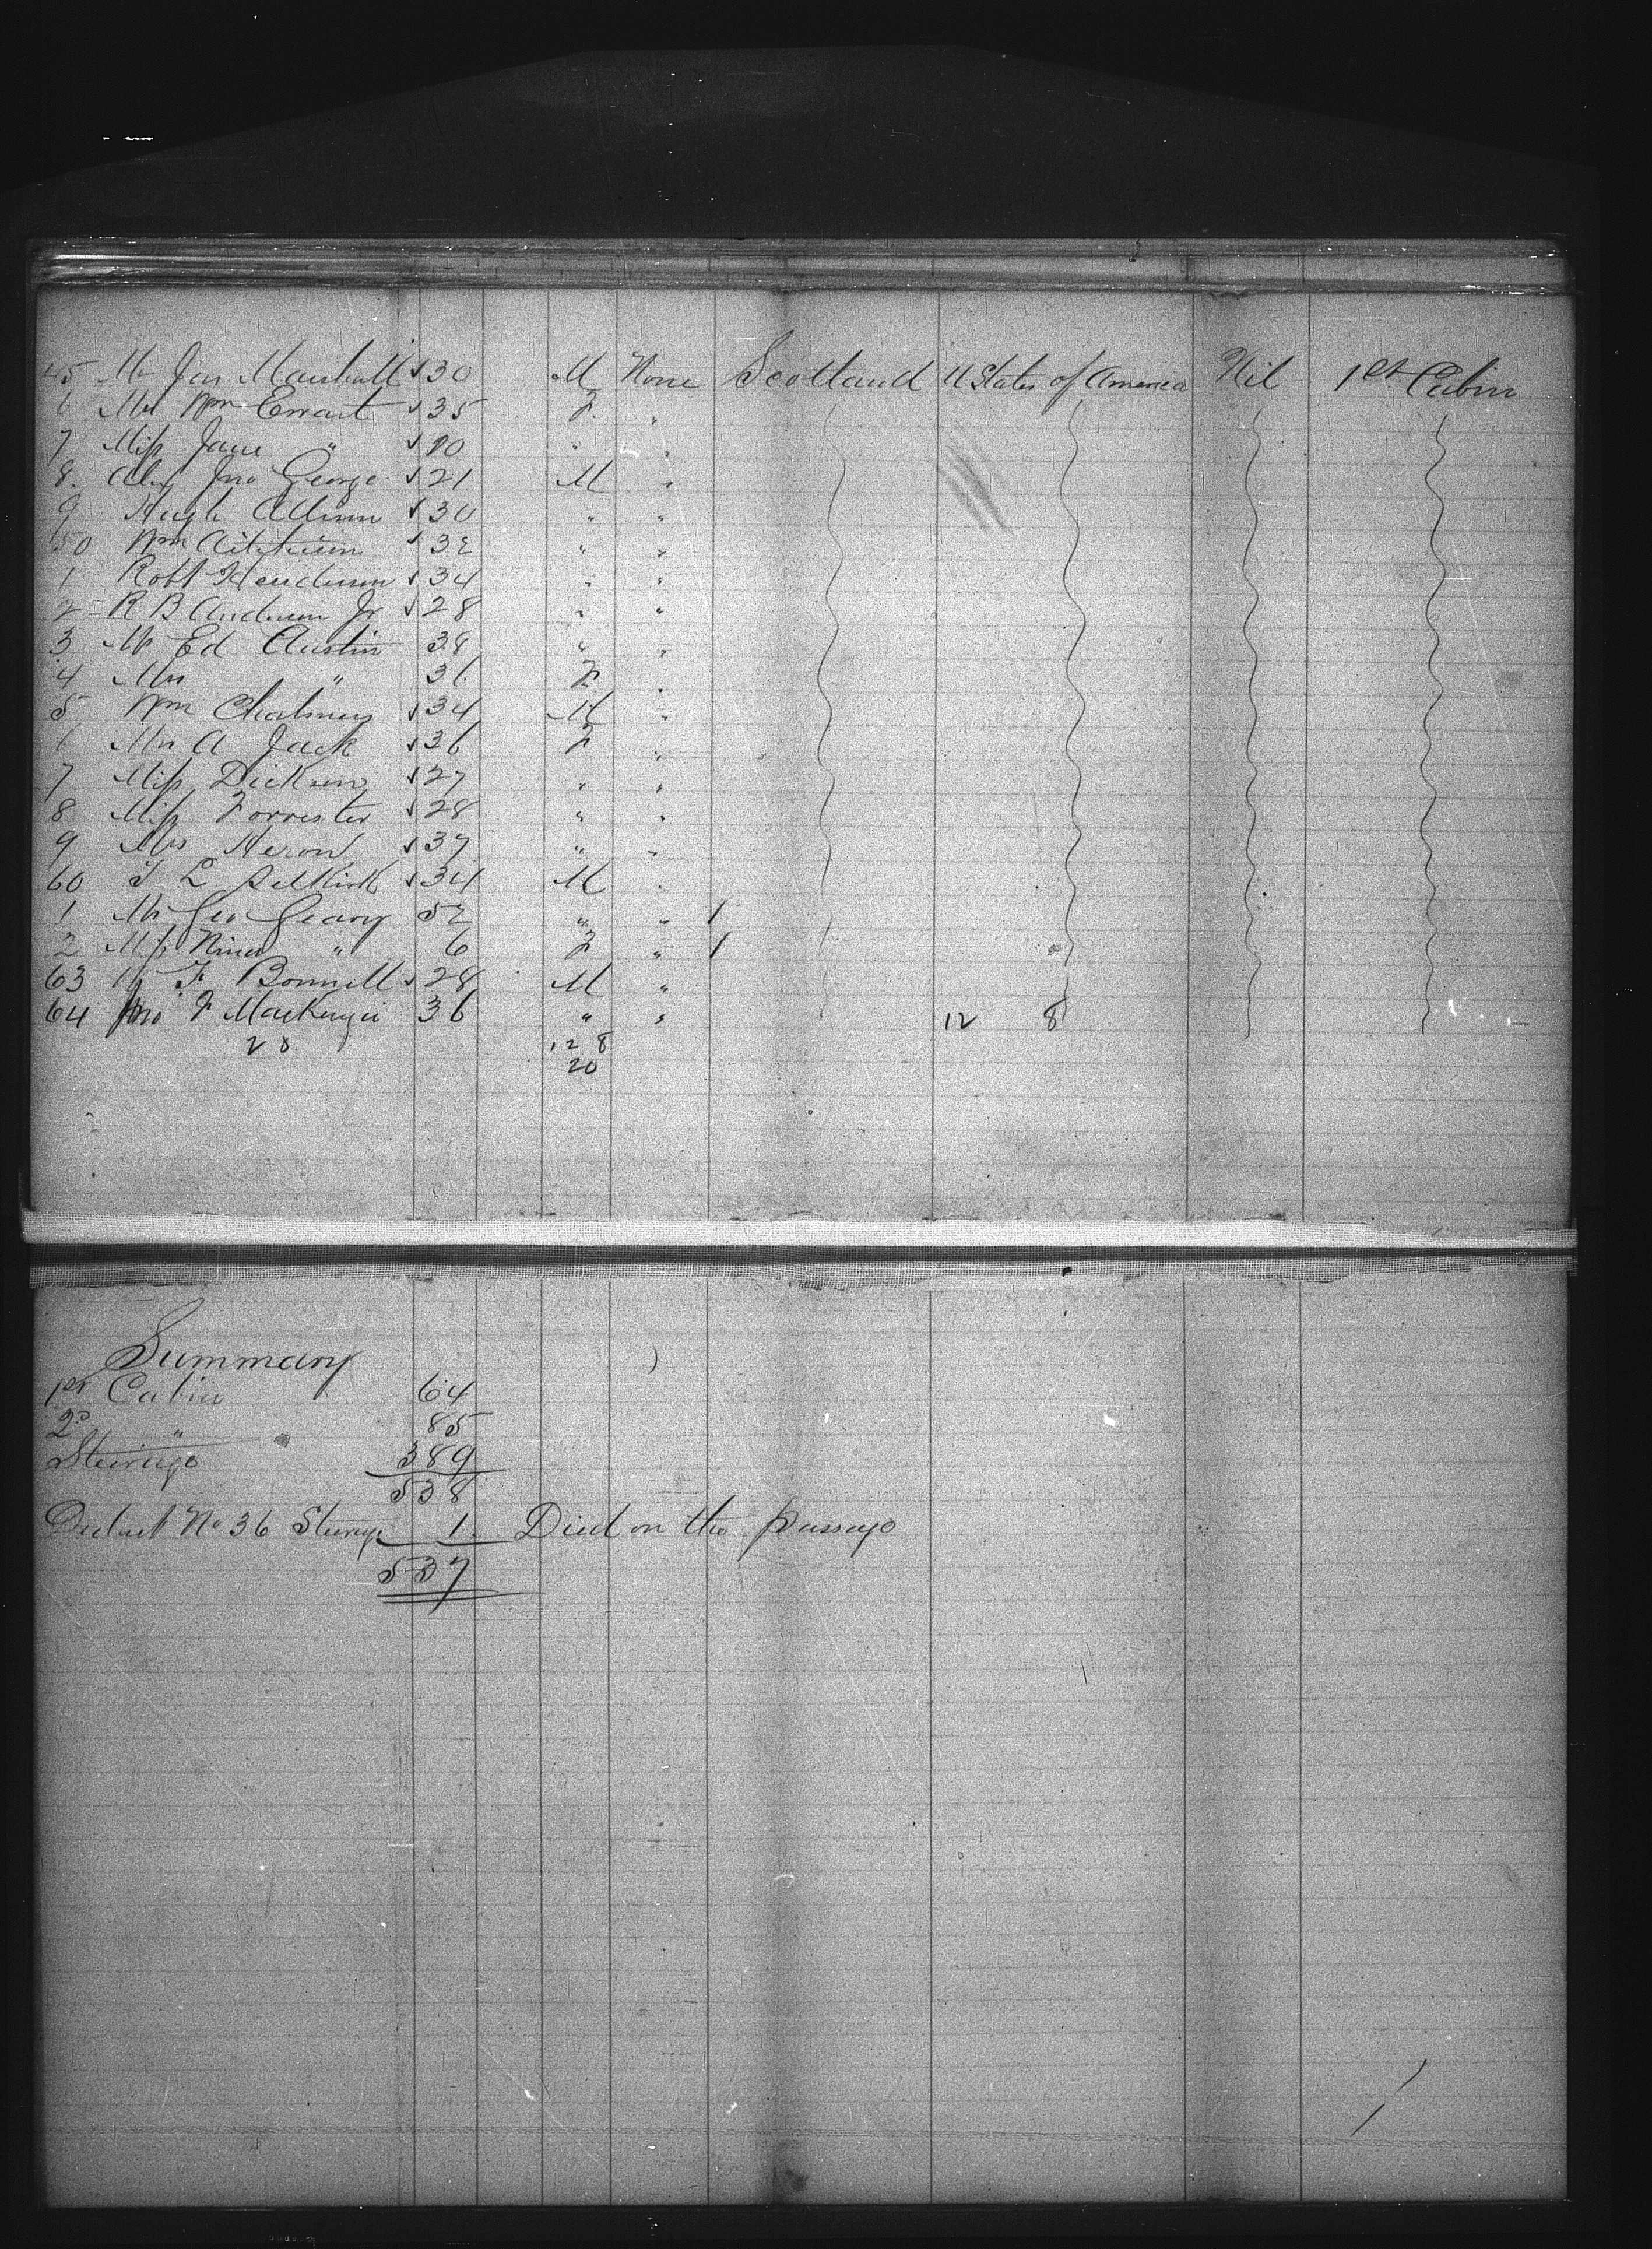 45 Mr Jas. Marshall 30 M None Scotland U States of America Nil 1st Cabin
6 Mrs Wm Ewart 35 F "
7 Miss Jane " 10 " "
8. Alex Jno George 21 M "
9 Hugh Allison 30 " "
50 Wm Aitchison 32 " "
1 Robt Henderson 34 " "
2 R B Anderson Jr 28 " "
3 Mr Ed Austin 38 " "
4 Mrs " 36 F "
5 Wm Chalmers 34 M "
6 Mrs A Jack 36 F "
7 Miss Dickson 27 " "
8 Miss Forrester 28 " "
9 Mrs Heron 37 " "
60 J L Selkirk 34 M "
1 Mr Geo Geary 52 " " 1
2 Miss Nina " 6 F " 1
63 F Bonnell 28 M "
64 Jno F MacKenzie 36 " " 12 8
28 12 8
20
Summary
1st Cabin 64
2d " 85
Steerage 389
538
Deduct No 36 Steerage 1 Died on the passage
537